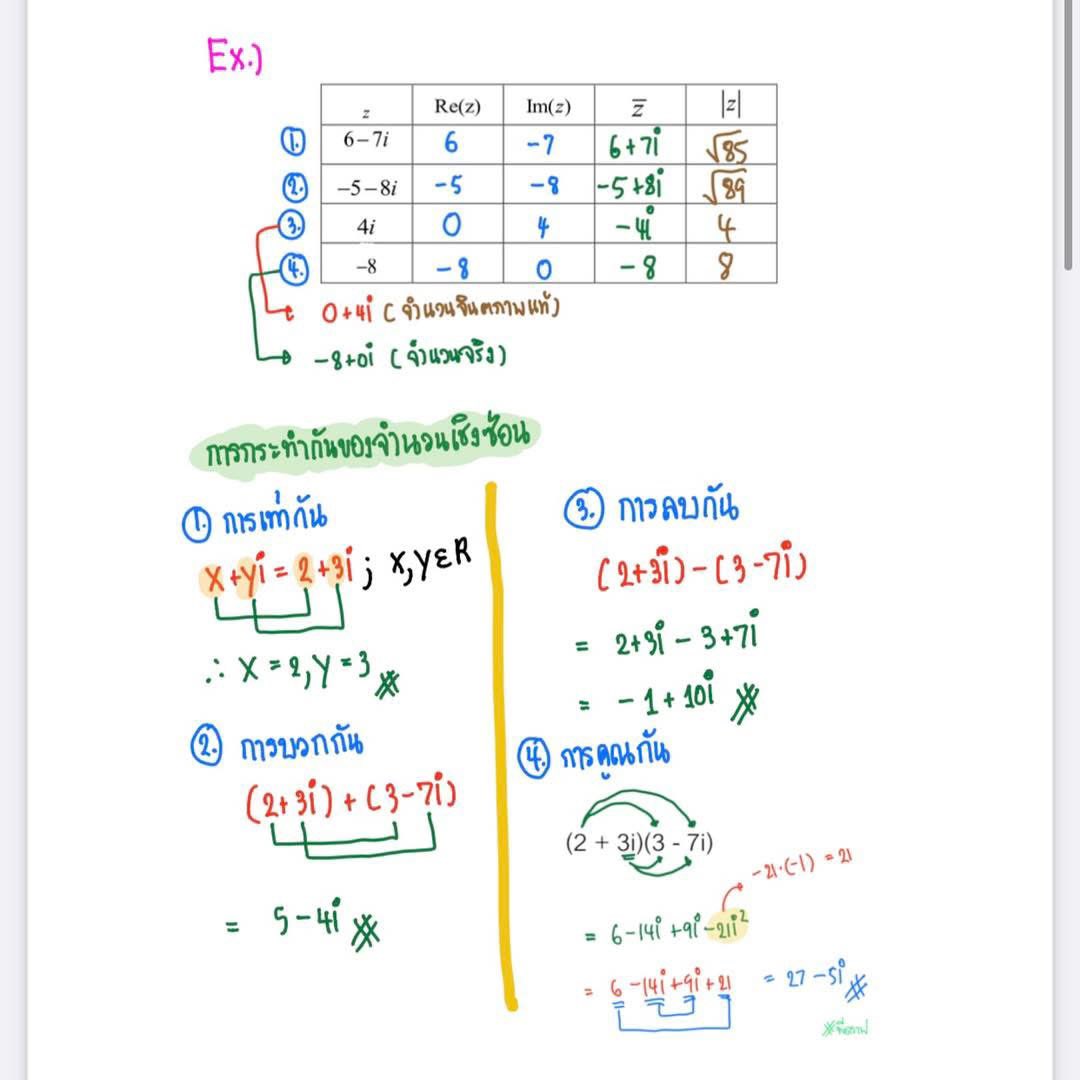 Ex.)
z Re(z) Im(z) z̅ |z|
①. 6−7i 6 -7 6+7i √85
②. −5−8i -5 -8 -5+8i √89
③. 4i 0 4 -4i 4
④. −8 -8 0 -8 8
0+4i (จำนวนจินตภาพแท้)
-8+0i (จำนวนจริง)
การกระทำกันของจำนวนเชิงซ้อน
①. การเท่ากัน
x+yi = 2+3i ; x,y ε R
∴ x = 2, y = 3
②. การบวกกัน
(2+3i) + (3-7i)
= 5-4i
③. การลบกัน
(2+3i) - (3-7i)
= 2+3i - 3+7i
= -1+10i
④. การคูณกัน
(2 + 3i)(3 - 7i)
-21·(-1) = 21
= 6-14i+9i-21i²
= 6-14i+9i+21 = 27-5i